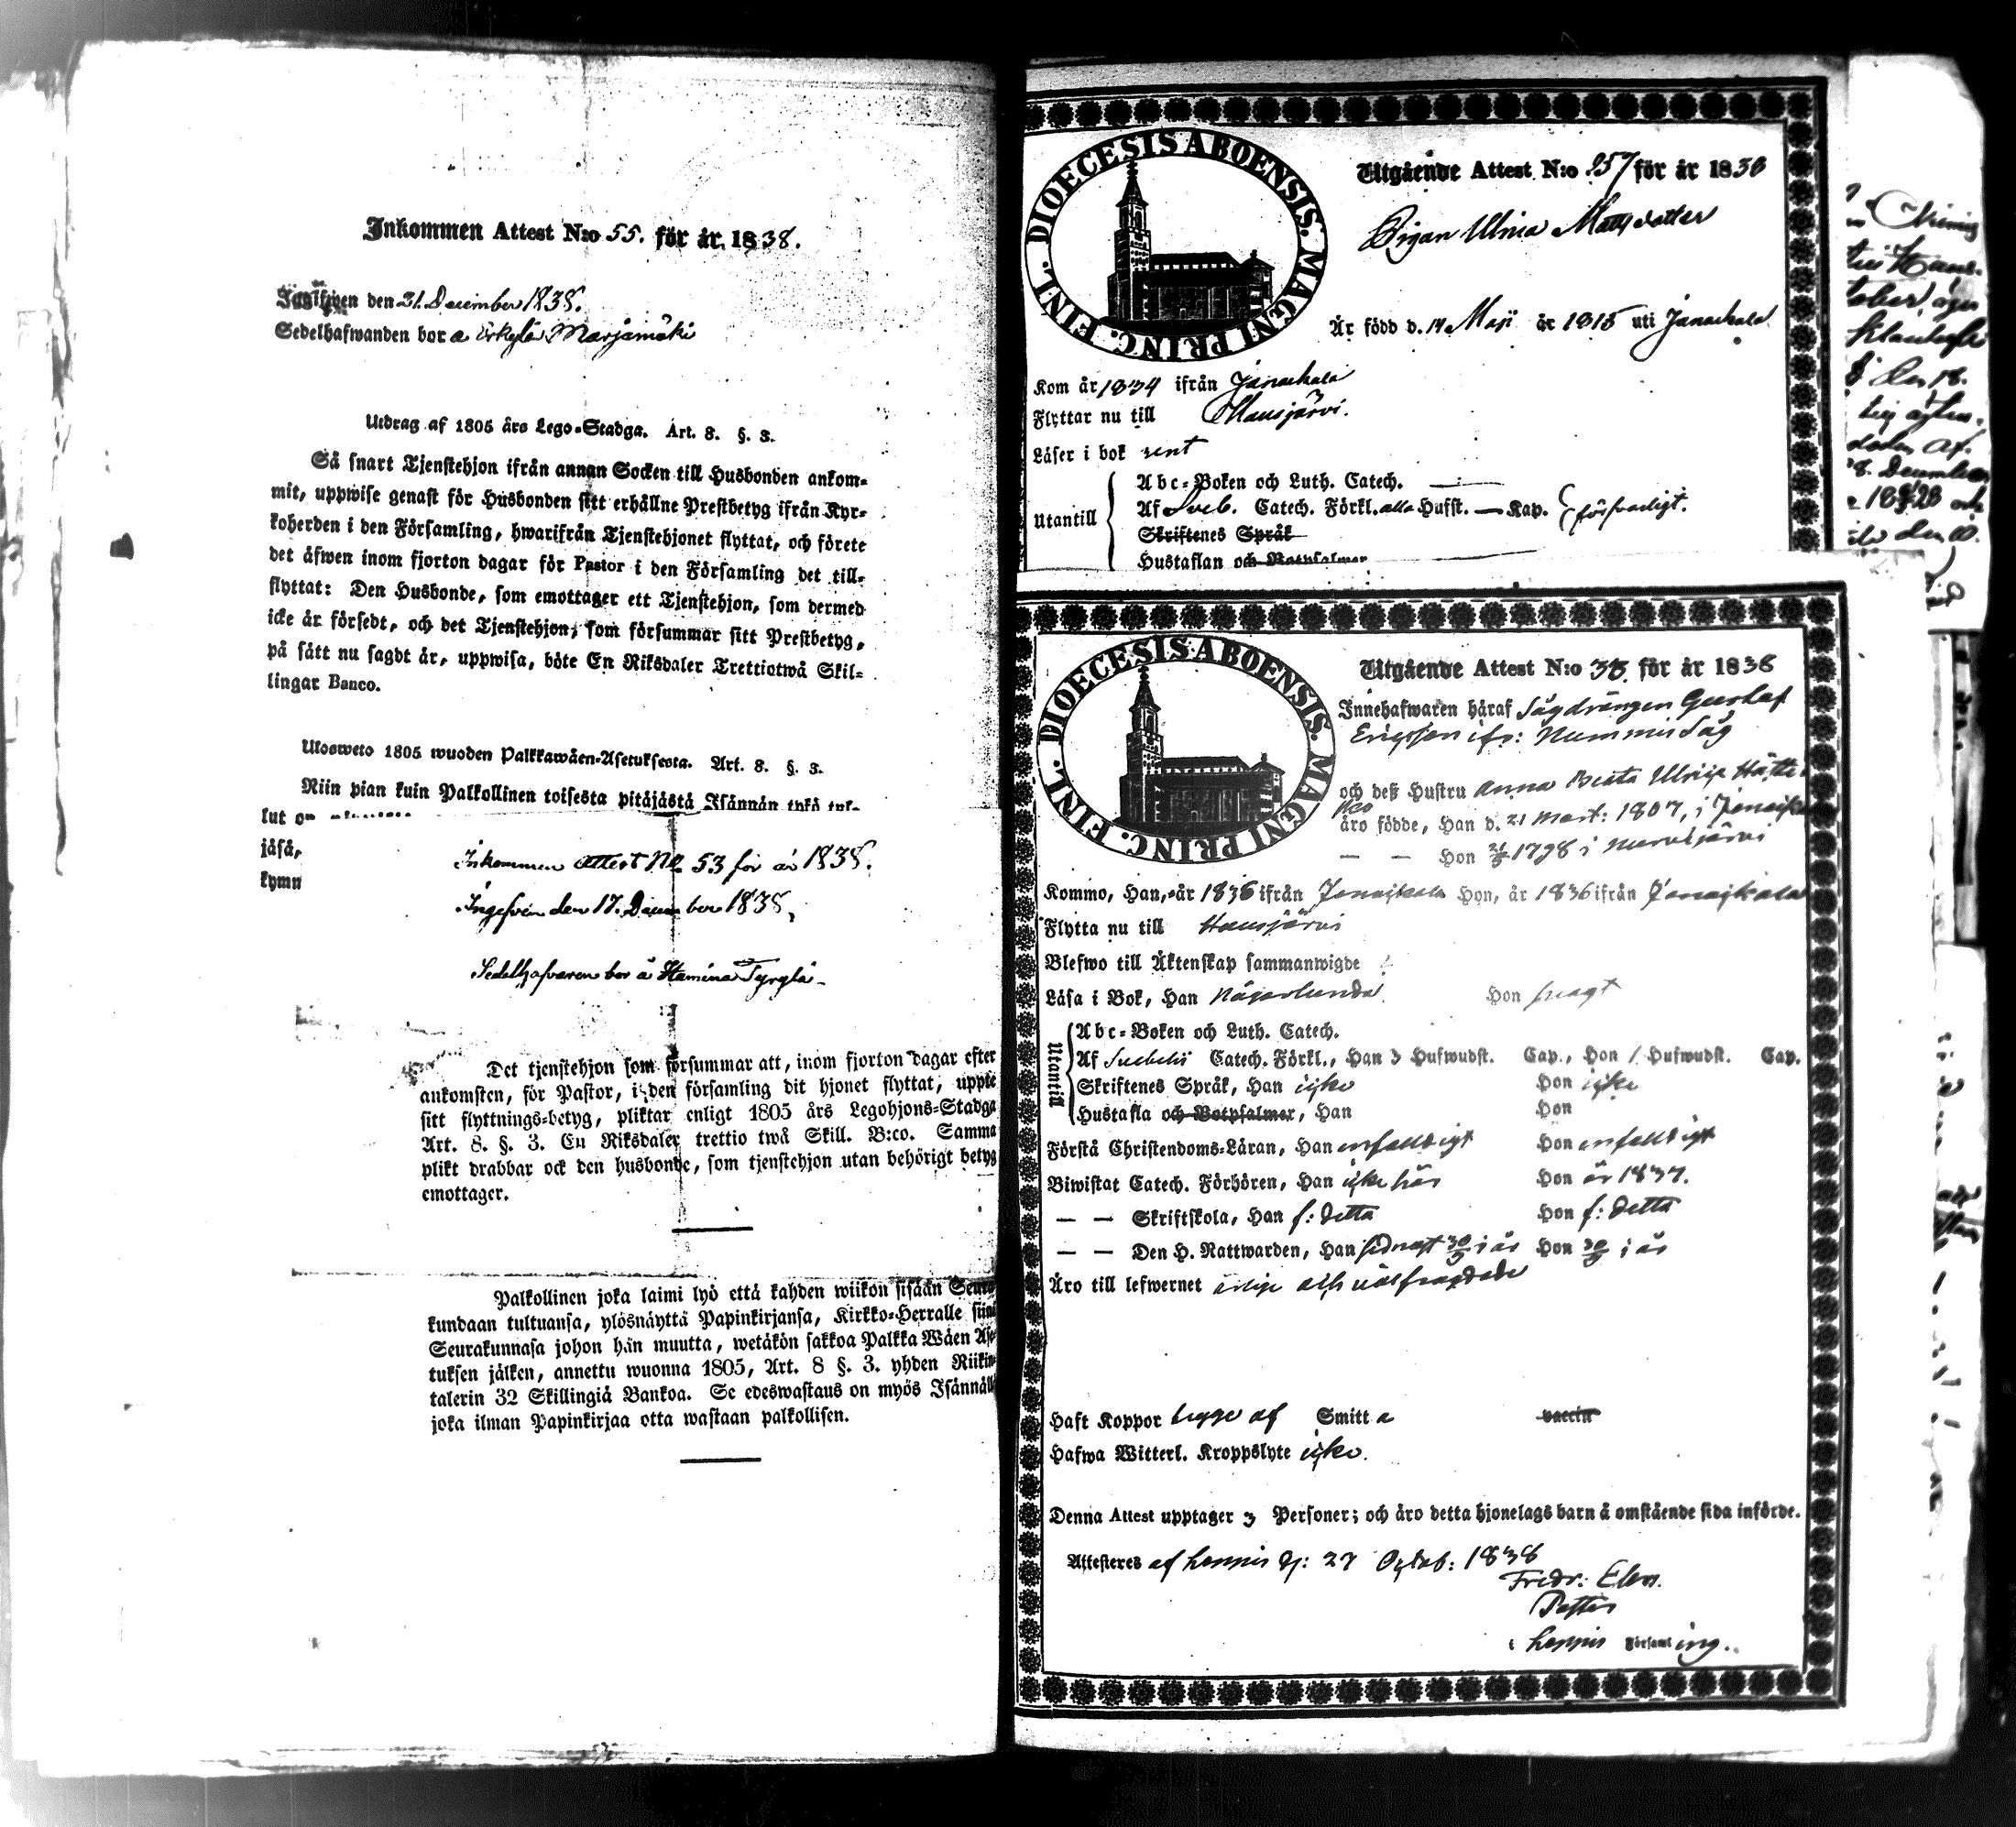 Inkommen Attest N:o 55. för år 1838.
den 31. December 1838.
Sedelhafwanden bor å Erkylä Marjamäki
Utdrag af 1805 års Lego-Stadga. Art. 8. §. 3.
Så snart Tjenstehjon ifrån annan Socken till Husbonden ankom-
mit, uppwise genast för Husbonden sitt erhållne Prestbetyg ifrån Kyr-
koherden i den Församling, hwarifrån Tjenstehjonet flyttat, och förete
det äfwen inom fjorton dagar för Pastor i den Församling det till-
flyttat: Den Husbonde, som emottager ett Tjenstehjon, som dermed
icke är försedt, och det Tjenstehjon, som försummar sitt Prestbetyg,
på sätt nu sagdt är, uppwisa, böte En Riksdaler Trettiotwå Skil-
lingar Banco.
Ulosweto 1805 wuoden Palkkawäen-Asetuksesta. Art. 8. §. 3.
Niin pian kuin Palkollinen toisesta pitäjästä Isännän tykö tul-
lut on
jäsä,
kymn
Inkommen attest No 53 för år 1838.
Ingifven den 17. December 1838,
Sedelhafvaren bor å Hamina Tyrylä
Det tjenstehjon som försummar att, inom fjorton dagar efter
ankomsten, för Pastor, i den församling dit hjonet flyttat, uppte
sitt flyttnings-betyg, pliktar enligt 1805 års Legohjons-Stadga
Art. 8. §. 3. En Riksdaler trettio twå Skill. B:co. Samma
plikt drabbar ock den husbonde, som tjenstehjon utan behörigt betyg
emottager.
Palkollinen joka laimi lyö että kahden wiikon sisään Seura
kundaan tultuansa, ylösnäyttä Papinkirjansa, Kirkko-Herralle siinä
Seurakunnasa johon hän muutta, wetäkön sakkoa Palkka Wäen Ase
tuksen jälken, annettu wuonna 1805, Art. 8 §. 3. yhden Riikin
talerin 32 Skillingiä Bankoa. Se edeswastaus on myös Isännällä
joka ilman Papinkirjaa otta wastaan palkollisen.
DIOECESIS ABOENSIS. MAGNI PRINC. FINL.
Utgående Attest N:o 257 för år 1838
Pigan Ulrica Matts dotter
Är född d. 14 Maji år 1815 uti Janackala
Kom år 1834 ifrån Janackala
Flyttar nu till Hausjärvi.
Läser i bok rent
Utantill
Abc-Boken och Luth. Catech.
Af Sveb. Catech. Förkl. alla Hufst. — Kap. försvarligt.
Skriftenes Språk
Hustaflan och Botpsalmer
DIOECESIS ABOENSIS. MAGNI PRINC. FINL.
Utgående Attest N:o 33. för år 1838
Innehafwaren häraf Sågdrängen Gustaf
Ericsson ifr: Nummis Såg
och deß Hustru Anna Beata Ulric
äro födde, Han d. 21 Mart: 1807, i
— — Hon 1798 i Nurmijärvi
Kommo, Han, år 1836 ifrån Janajkala Hon, år 1836 ifrån Janajkala
Flytta nu till Hausjärvi
Blefwo till Äktenskap sammanwigde
Läsa i Bok, Han Någorlunda Hon svagt
Utantill
Abc-Boken och Luth. Catech.
Af Svebelii Catech. Förkl., Han 3 Hufwudst. Cap., Hon 1 Hufwudst. Cap.
Skriftenes Språk, Han icke Hon icke
Hustafla och Botpsalmer, Han Hon
Förstå Christendoms-Läran, Han enfaldigt Hon enfaldigt
Biwistat Catech. Förhören, Han icke här Hon år 1837.
— — Skriftskola, Han f: detta Hon f: detta
— — Den H. Nattwarden, Han sednast 30/9 i år Hon 30/9 i år
Äro till lefwernet ärlige och välfrägdade
Haft Koppor begge af Smitta vaccin
Hafwa Witterl. Kroppslyte icke.
Denna Attest upptager 3 Personer; och äro detta hjonelags barn å omstående sida införde.
Attesteras af Loppis d: 27 Octob: 1838
Fredr:
Pastor
i Loppis Församling.